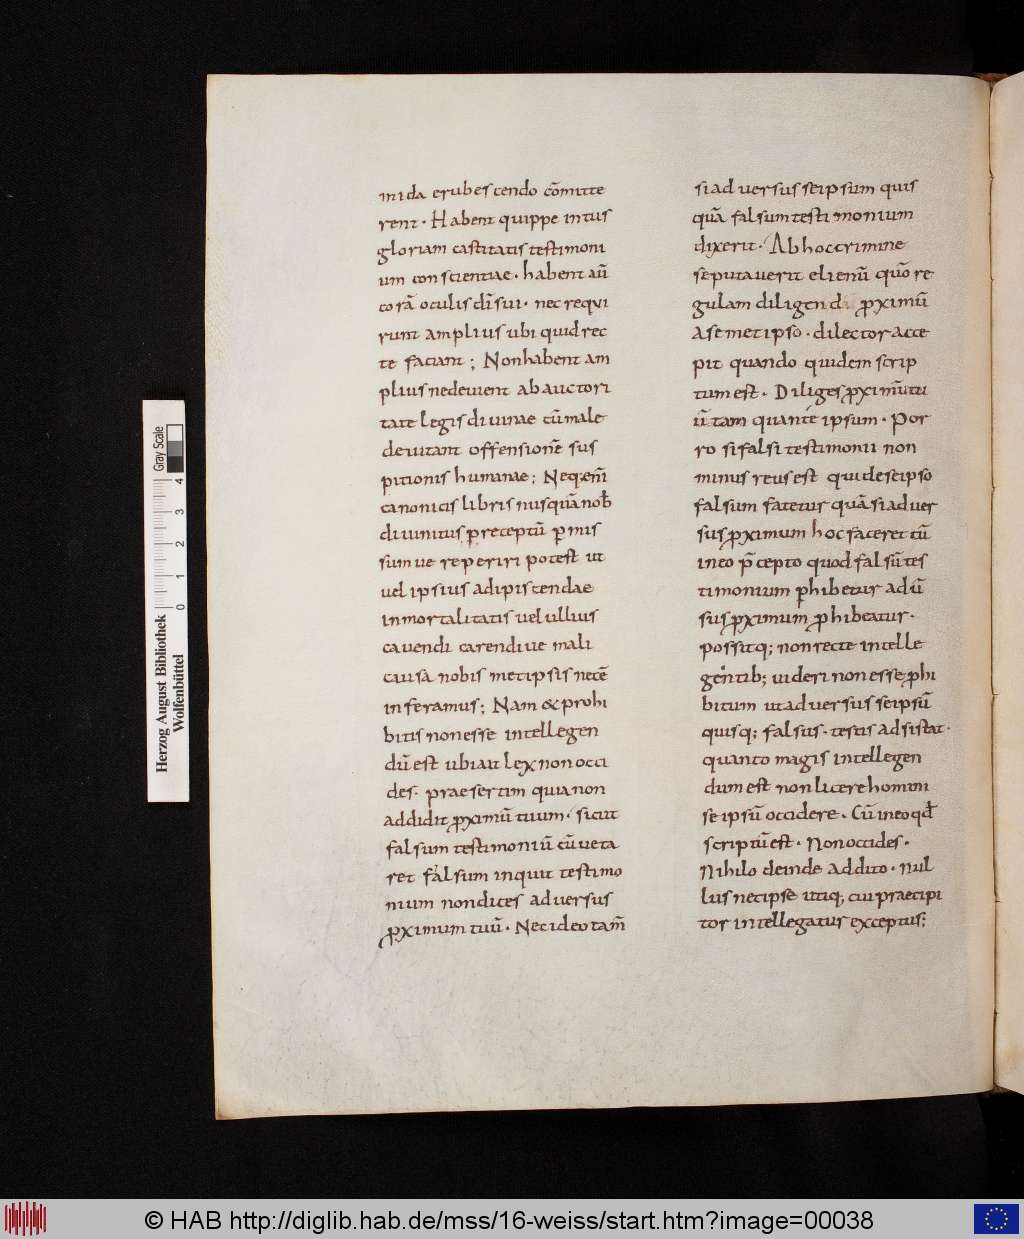 mida erubescendo cōmitte
rent · Habent quippe intus
gloriam castitatis testimoni
um conscientiae · habent aū
corā oculis dī sui · nec requi
runt amplius ubi quid rec
te faciant ; Non habent am
plius ne deuient ab auctori
tate legis diuinae cū male
deuitant offensionē sus
pitionis humanae ; Neq; eni̅
canonicis libris nusquā nob̅
diuinitus p̅receptū p̲mis
sum ue reperiri potest ut
uel ipsius adipiscendae
inmortalitatis uel ullius
cauendi carendiue mali
causa nobis metipsis necē
inferamus ; Nam & prohi
bitis non esse intellegen
dū est ubi aīt lex non occi
des · praesertim quia non
addidit ꝓximū tuum · sicut
falsum testimoniū cū ueta
ret falsum inquit testimo
nium non dices aduersus
ꝓximum tuū · Nec ideo tam̅
si aduersus se ipsum quis
quā falsum testimonium
dixerit · Ab hoc crimine
se putauerit elienū quō re
gulam diligendi ꝓximū
A semet ipso · dilector acce
pit quando quidem scrip
tum est · Diliges ꝓximū tu
ū tam quam te ipsum · Por
ro si falsi testimonii non
minus reus est qui de se ipso
falsum fatetur quā si aduer
sus ꝓximum hoc faceret cū
in eo p̅cepto quod falsū tes
timonium ꝓhibetur adū
sus ꝓximum ꝓhibeatur ·
possitq; non recte intelle
gentib; uideri non esse ꝓhi
bitum ut aduersus se ipsū
quisq; falsus · testis adsistat ·
quanto magis intellegen
dum est non licere homini
se ipsū occidere · Cū in eo qđ
scriptū est · Non occides ·
Nihilo deinde addito · nul
lus nec ipse utiq; cui praecipi
tor intellegatur exceptus ;
Herzog August Bibliothek
Wolfenbüttel
0 1 2 3 4
Gray Scale
© HAB http://diglib.hab.de/mss/16-weiss/start.htm?image=00038